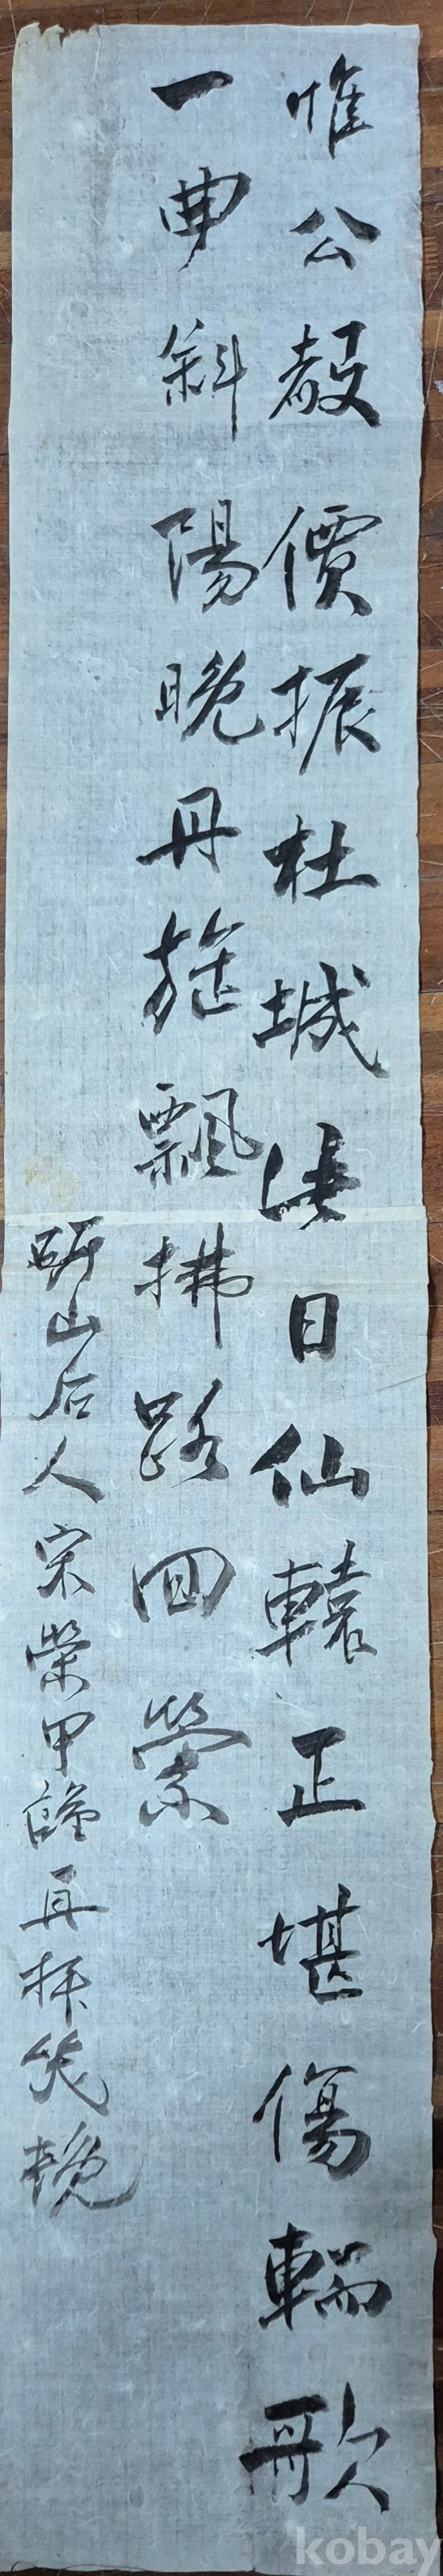 惟公殸價振杜城日仙轅正堪傷輲歌
一曲斜陽晩丹旌飄拂路回縈
砺山后人宋榮甲謹再拜哭輓
kobay